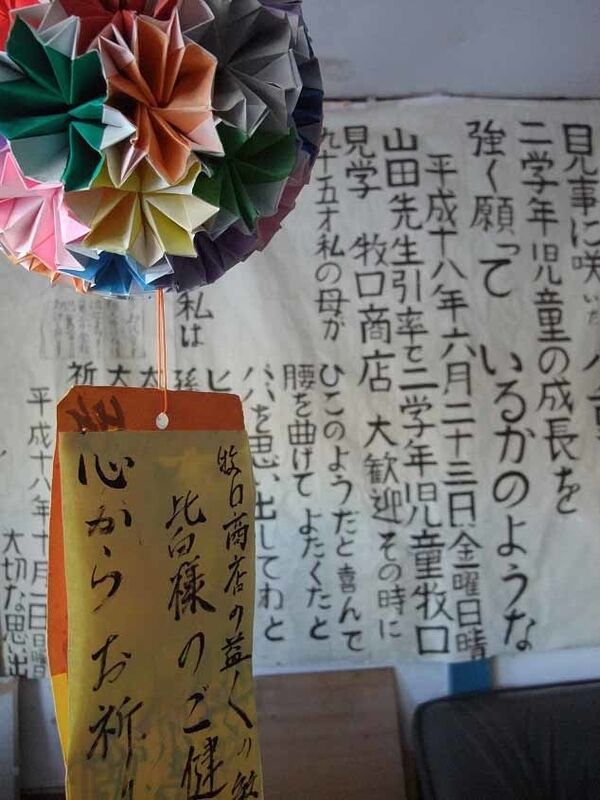 見事に咲いた
二学年児童の成長を
強く願って いるかのような
平成十八年六月二十三日金曜日晴
山田先生引率で二学年児童牧口
見学 牧口商店 大歓迎その時に
九十五才私の母が ひこのようだと喜んで
腰を曲げて よたくたと
を思い出してわと
私は
孫
大
祈
平成十八年十月一日日曜
大切な思い出
牧口商店の益々の
皆様のご健
心からお祈り